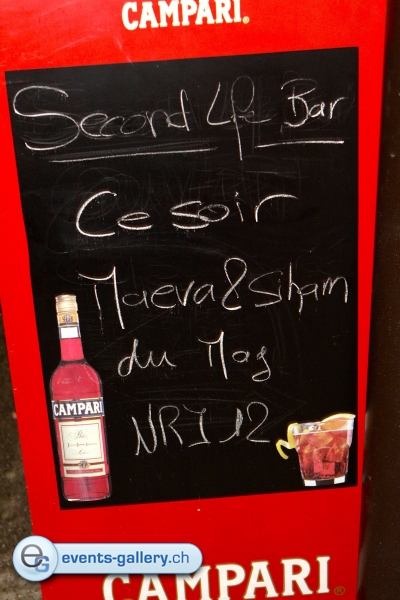 CAMPARI.
Second Life Bar
Ce soir
Maeva & Siham
du Mag
NRJ 12
CAMPARI
eg events-gallery.ch
CAMPARI®